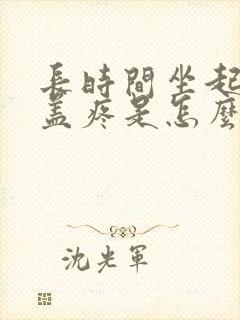 長時間坐起
蓋疼是怎麼
沈光軍